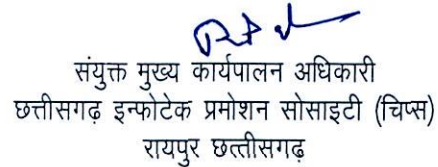 संयुक्त मुख्य कार्यपालन अधिकारी
छत्तीसगढ़ इन्फोटेक प्रमोशन सोसाइटी (चिप्स)
रायपुर छत्तीसगढ़